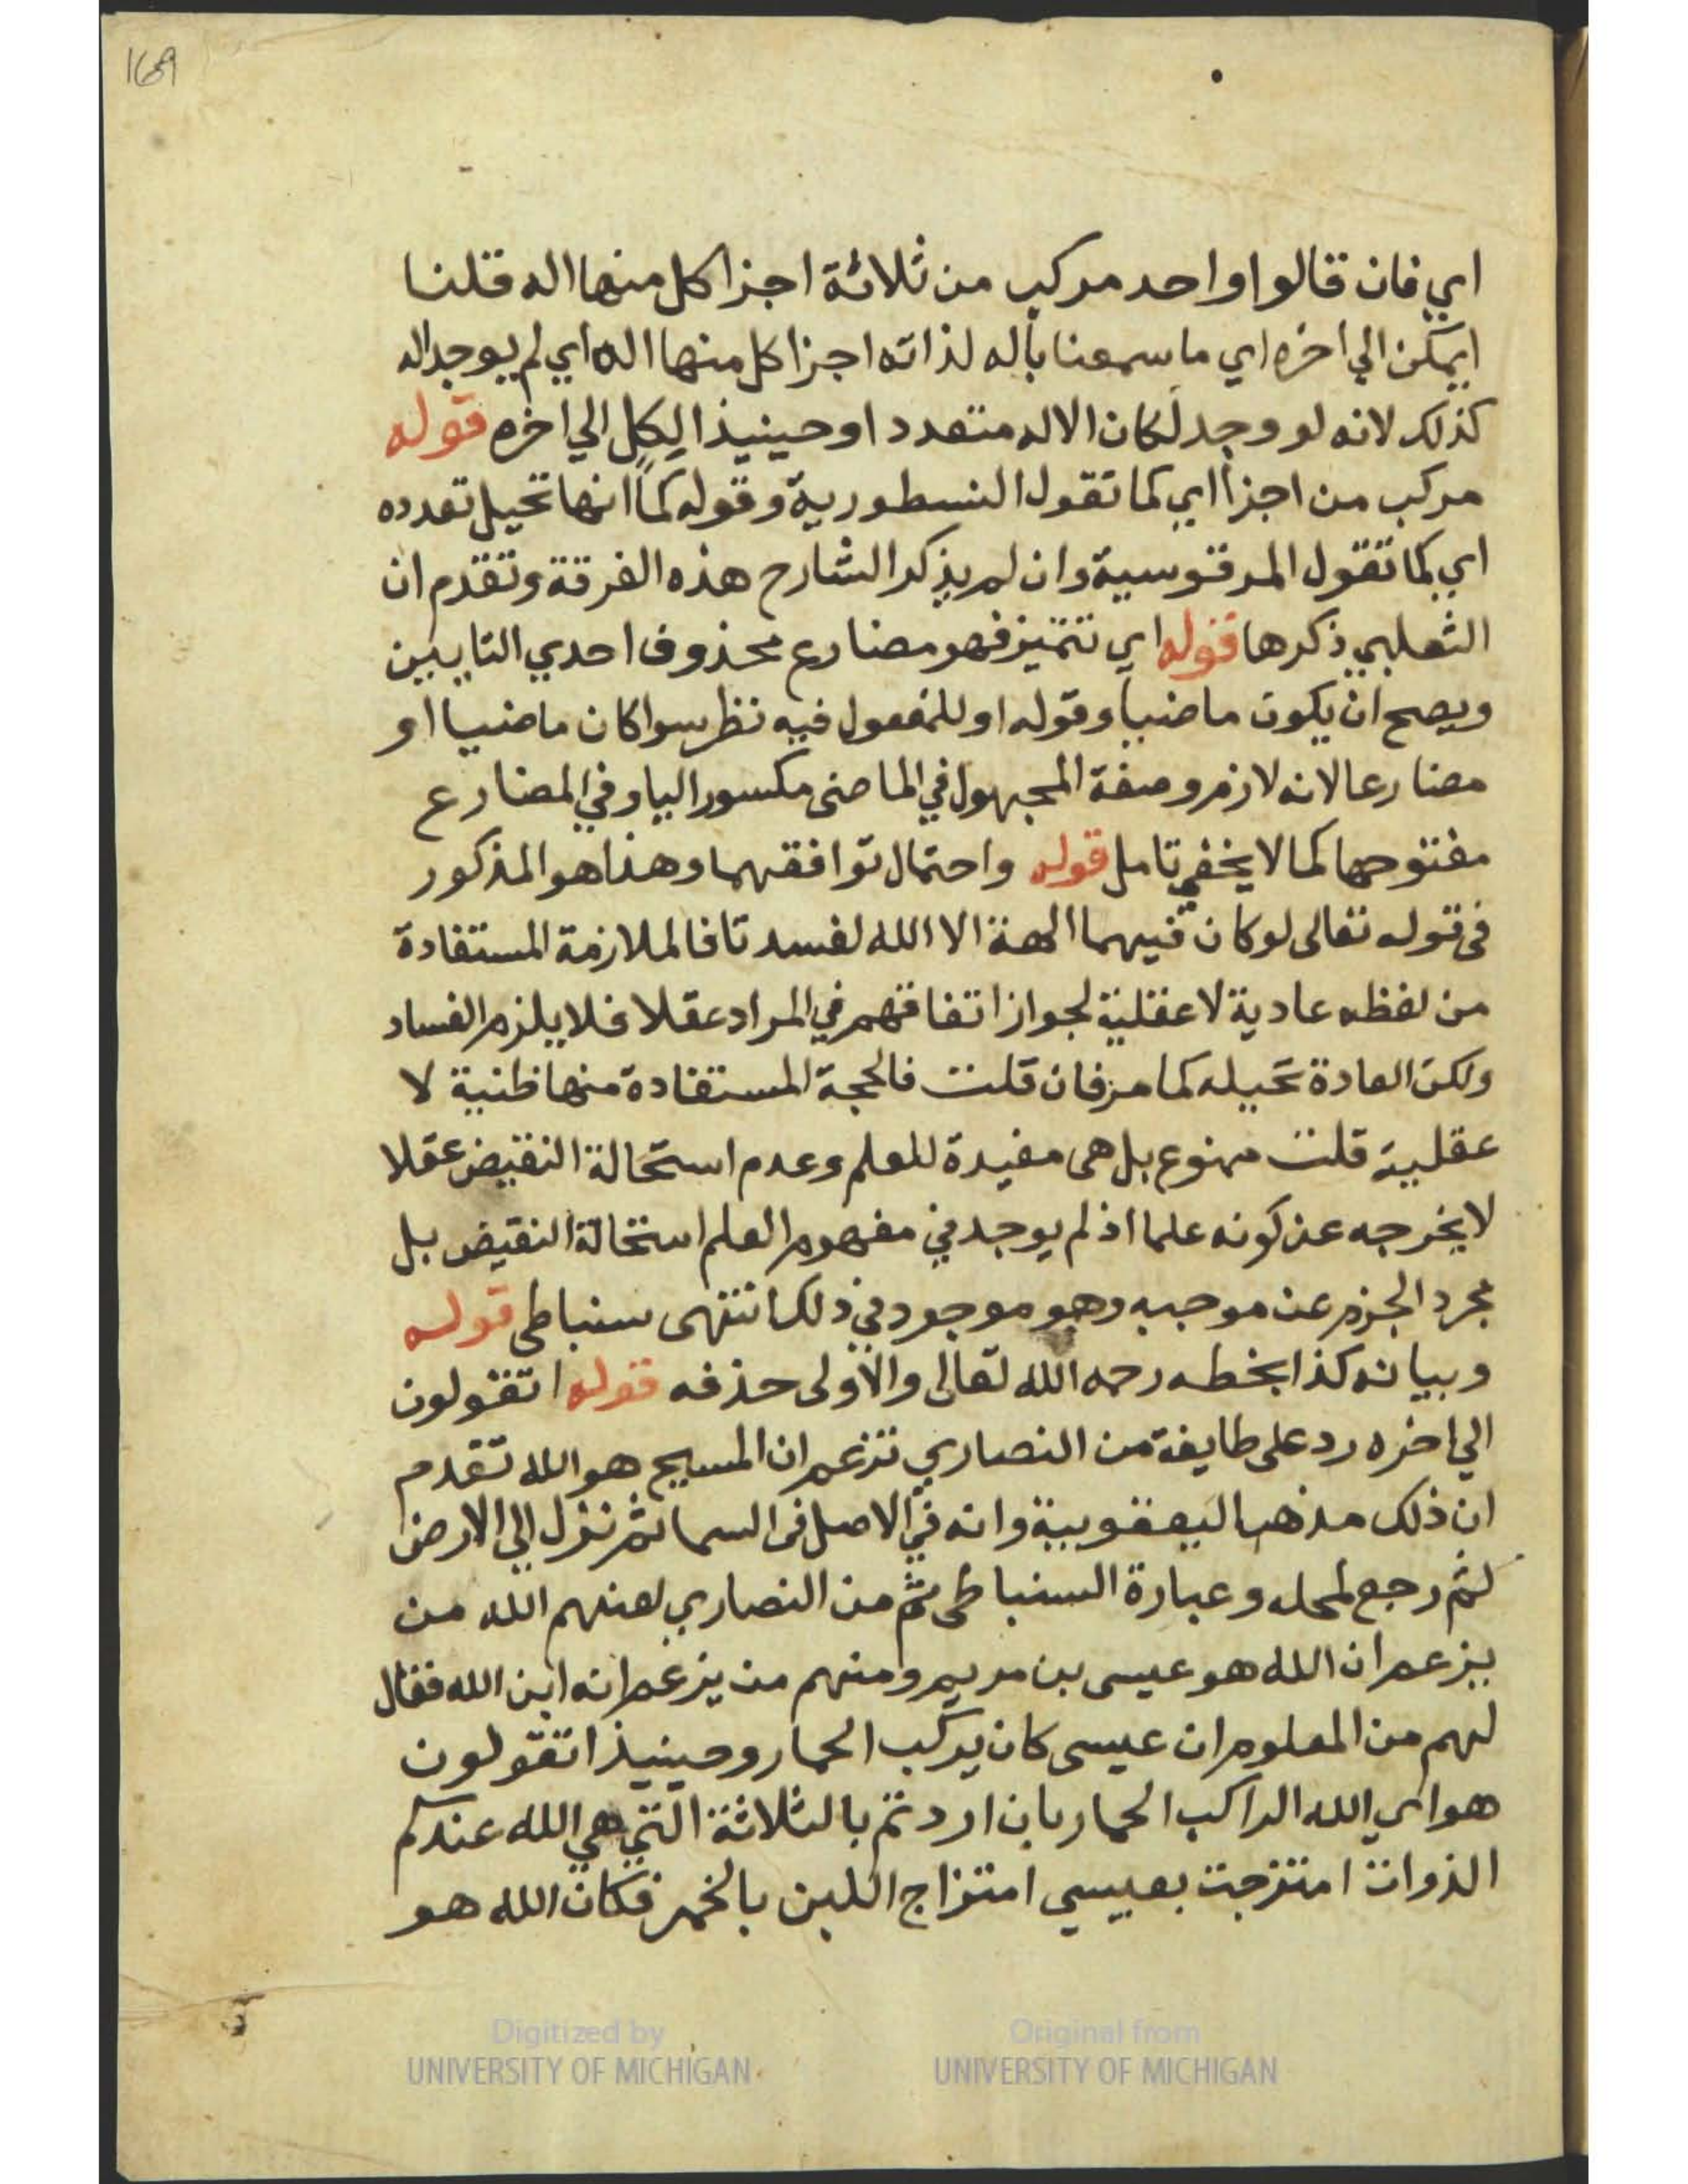 169
اي فان قالوا واحد مركب من ثلاثة اجزا كل منها اله قلنا
ايمكن الي اخره اي ما سمعنا باله لذاته اجزا كل منها اله اي لم يوجد اله
كذلك لانه لو وجد لكان الاله متعددا وحينيذ اليكل الي اخره قوله
مركب من اجزا اي كما تقول النسطورية وقوله كما انها تحيل تعدده
اي كما تقول المرقوسية وان لم يذكر الشارح هذه الفرقة وتقدم ان
الثعلبي ذكرها قوله اي تتميز فهو مضارع محذوف احدي التايين
ويصح ان يكون ماضيا وقوله او للمفعول فيه نظر سوا كان ماضيا او
مضارعا لانه لازم وصفة المجهول في الماضي مكسور اليا وفي المضارع
مفتوحها كما لا يخفي تامل قوله واحتمال توافقهما وهذا هو المذكور
في قوله تعالى لو كان فيهما الهة الا الله لفسدتا فالملازمة المستفادة
من لفظه عادية لا عقلية لجواز اتفاقهم في المراد عقلا فلا يلزم الفساد
ولكن العادة تحيله كما مر فان قلت فالحجة المستفادة منها ظنية لا
عقلية قلت ممنوع بل هي مفيدة للعلم وعدم استحالة النقيض عقلا
لا يخرجه عن كونه علما اذ لم يوجد في مفهوم العلم استحالة النقيض بل
مجرد الجزم عن موجبه وهو موجود في ذلك انتهى سنباطي قوله
وبيانه كذا بخطه رحمه الله تعالى والاولى حذفه قوله اتقولون
الي اخره رد على طايفة من النصاري تزعم ان المسيح هو الله تقدم
ان ذلك مذهب اليعقوبية وانه في الاصل في السما ثم نزل الي الارض
ثم رجع لمحله وعبارة السنباطي ثم من النصاري لعنهم الله من
يزعم ان الله هو عيسى بن مريم ومنهم من يزعم انه ابن الله فقال
لهم من المعلوم ان عيسى كان يركب الحمار وحينيذ اتقولون
هو اي الله الراكب الحمار بان اردتم بالثلاثة التي هي الله عندكم
الذوات امتزجت بعيسي امتزاج اللبن بالخمر فكان الله هو
Digitized by UNIVERSITY OF MICHIGAN
Original from UNIVERSITY OF MICHIGAN